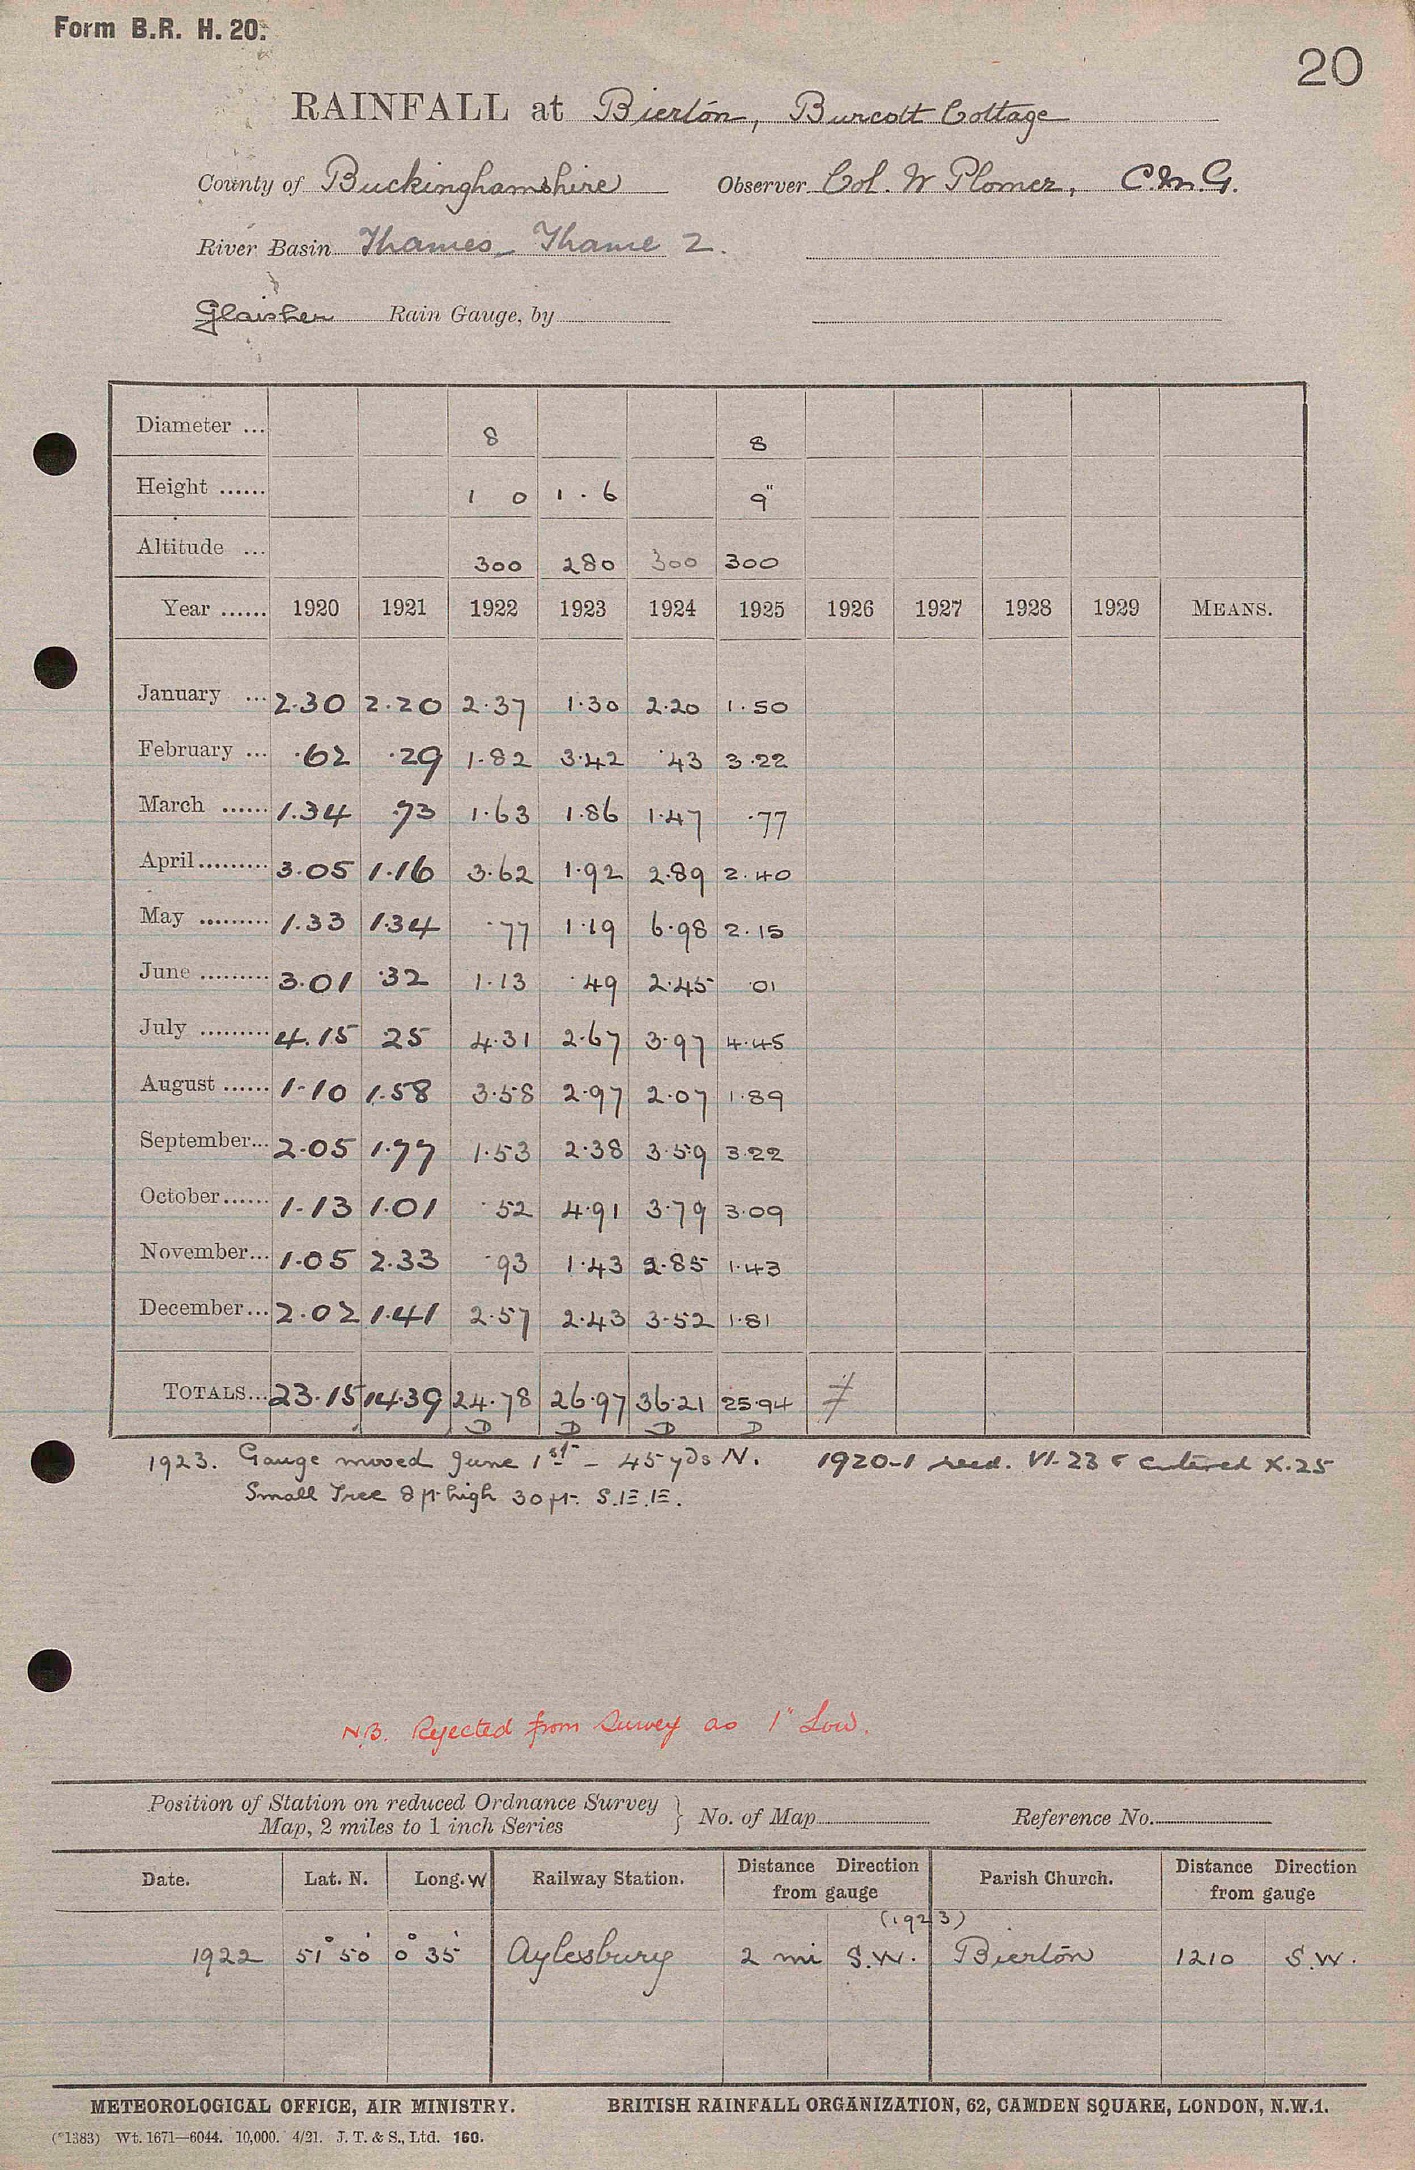 Form B.R. H. 20.
20
RAINFALL at Bierton, Burcott Cottage
County of Buckinghamshire Observer Col. W Plomer, C.M.G.
River Basin Thames - Thame 2.
Glaisher Rain Gauge, by
Diameter ... 8 8
Height ...... 1 0 1 . 6 9"
Altitude ... 300 280 300 300
Year ...... 1920 1921 1922 1923 1924 1925 1926 1927 1928 1929 MEANS.
January ... 2.30 2.20 2.37 1.30 2.20 1.50
February ... .62 .29 1.82 3.42 .43 3.22
March ...... 1.34 .73 1.63 1.86 1.47 .77
April......... 3.05 1.16 3.62 1.92 2.89 2.40
May ......... 1.33 1.34 .77 1.19 6.98 2.15
June ......... 3.01 .32 1.13 .49 2.45 .01
July ......... 4.15 .25 4.31 2.67 3.97 4.45
August ...... 1.10 1.58 3.58 2.97 2.07 1.89
September... 2.05 1.77 1.53 2.38 3.59 3.22
October...... 1.13 1.01 .52 4.91 3.79 3.09
November... 1.05 2.33 .93 1.43 2.85 1.43
December... 2.02 1.41 2.57 2.43 3.52 1.81
TOTALS... 23.15 14.39 24.78 26.97 36.21 25.94
D D D D
1923. Gauge moved June 1st - 45 yds N. 1920-1 recd. VI.23 & entered X.25
Small Tree 8 ft high 30 ft. S.E.E.
N.B. Rejected from Survey as 1" Low.
Position of Station on reduced Ordnance Survey
Map, 2 miles to 1 inch Series } No. of Map Reference No.
Date. Lat. N. Long. W Railway Station. Distance Direction from gauge Parish Church. Distance Direction from gauge
(1923)
1922 51° 50' 0° 35' Aylesbury 2 mi S.W. Bierton 1210 S.W.
METEOROLOGICAL OFFICE, AIR MINISTRY. BRITISH RAINFALL ORGANIZATION, 62, CAMDEN SQUARE, LONDON, N.W.1.
(*1383) Wt. 1671—6044. 10,000. 4/21. J. T. & S., Ltd. 160.